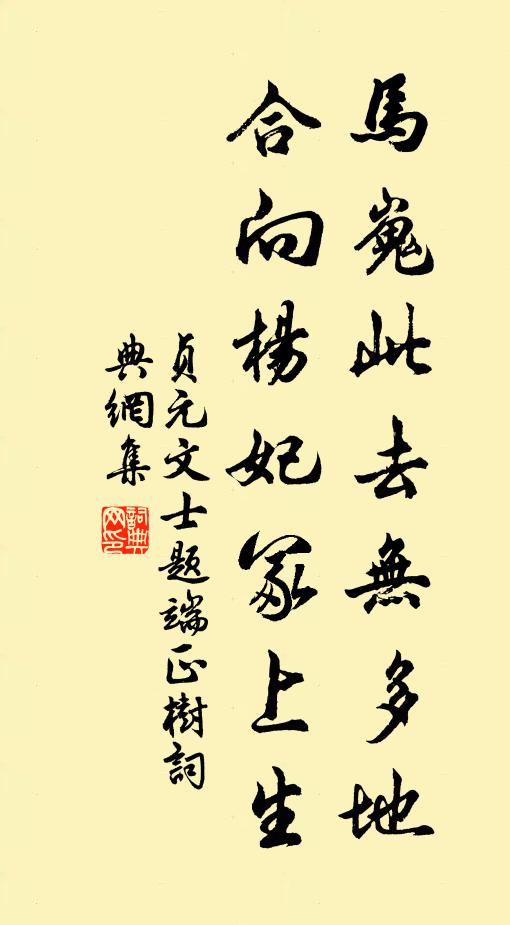 馬嵬此去無多地
合向楊妃冢上生
貞元文士題端正樹詞
典網集
詞典網印